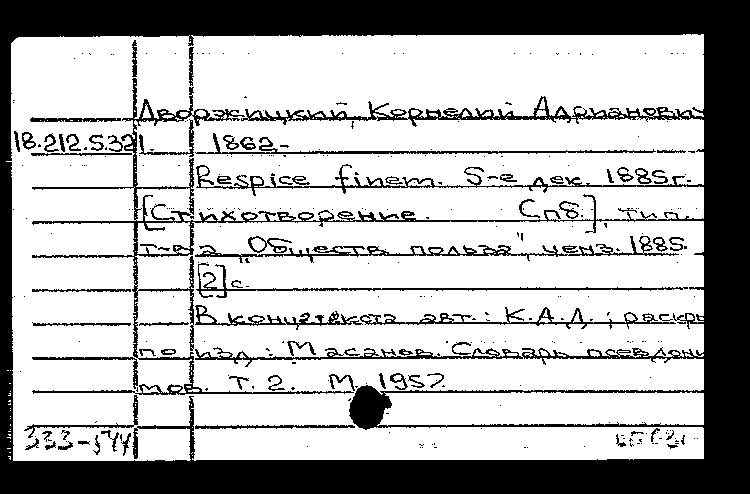 Дворжицкий, Корнелий Адрианович
18.212.5.321. 1862-
Respice finem. 5-е дек. 1885г.
[Стихотворение. Спб.], тип.
т-ва "Обществ. польза", ценз. 1885.
[2] с.
В конце текста авт.: К.А.Д.; раскры
по изд.: Масанов. Словарь псевдони
мов. Т. 2. М. 1957.
333-544